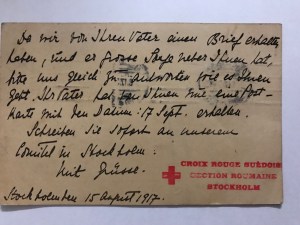 Da wir von Ihren Vater einen Brief erhalten
haben, und er grosse Angst ueber Ihnen hat,
bitte uns gleich zu antworten wie es Ihnen
geht. Ihr Vater hat von Ihnen nur eine Post-
karte mit den Datum: 17 Sept. erhalten.
Schreiben Sie sofort an unserem
Comitel in Stockholm.
Mit Grüsse.
Stockholm den 15 August 1917.
CROIX ROUGE SUÉDOISE
SECTION ROUMAINE
STOCKHOLM